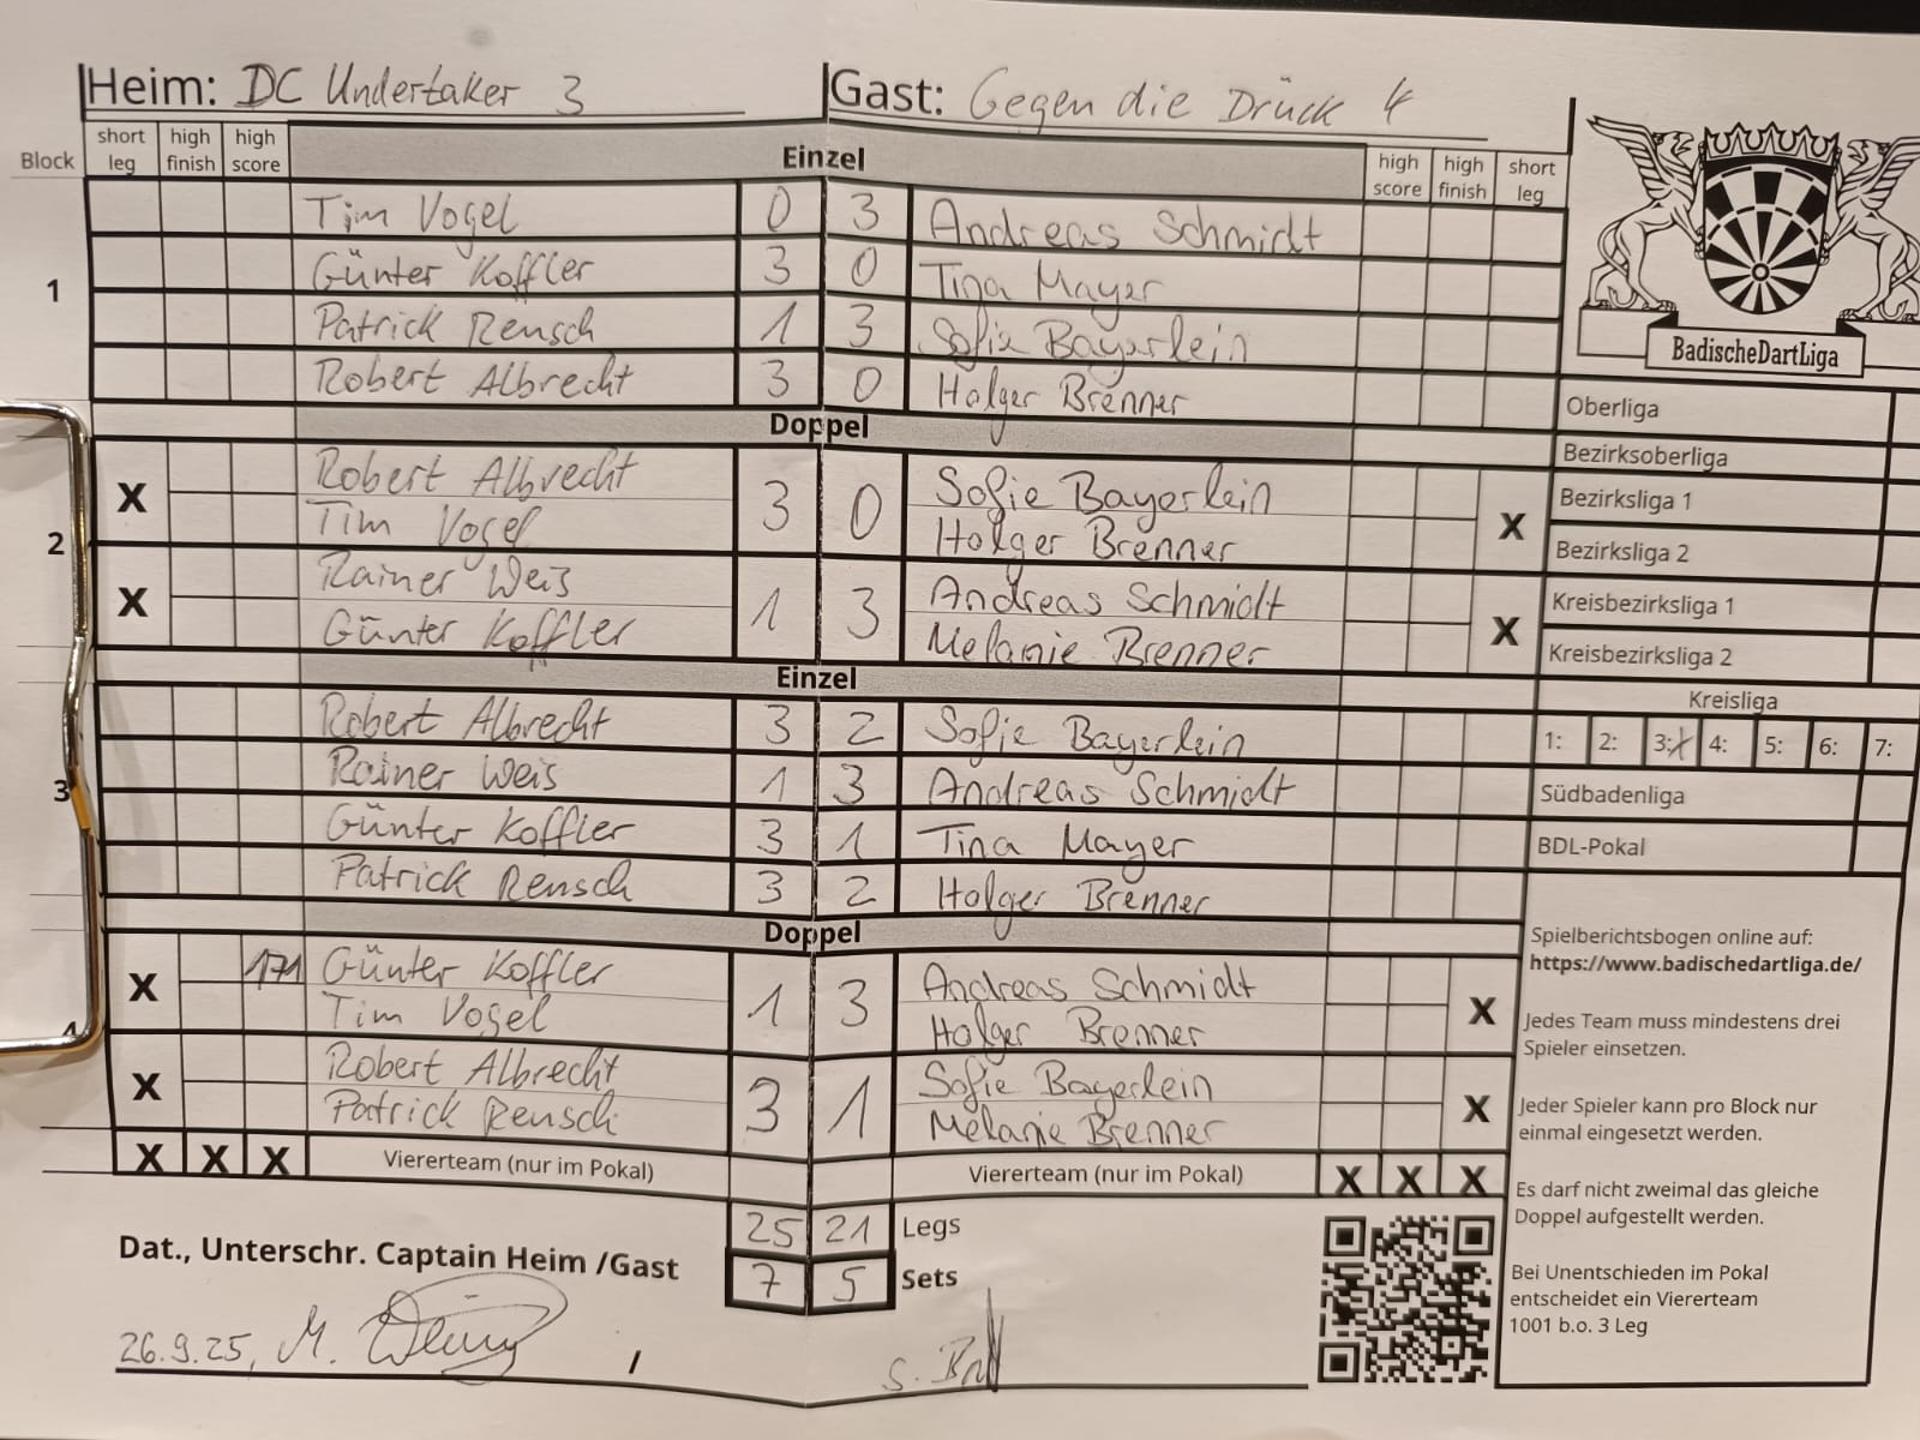 Heim: DC Undertaker 3 Gast: Gegen die Drück 4
Block short leg high finish high score Einzel high score high finish short leg
1
Tim Vogel 0 3 Andreas Schmidt
Günter Koffler 3 0 Tina Mayer
Patrick Rensch 1 3 Sofie Bayerlein
Robert Albrecht 3 0 Holger Brenner
BadischeDartLiga
Doppel
2
X Robert Albrecht 3 0 Sofie Bayerlein X
Tim Vogel Holger Brenner
X Rainer Weis 1 3 Andreas Schmidt X
Günter Koffler Melanie Brenner
Einzel
3
Robert Albrecht 3 2 Sofie Bayerlein
Rainer Weis 1 3 Andreas Schmidt
Günter Koffler 3 1 Tina Mayer
Patrick Rensch 3 2 Holger Brenner
Doppel
4
X 171 Günter Koffler 1 3 Andreas Schmidt X
Tim Vogel Holger Brenner
X Robert Albrecht 3 1 Sofie Bayerlein X
Patrick Rensch Melanie Brenner
X X X Viererteam (nur im Pokal) Viererteam (nur im Pokal) X X X
25 21 Legs
7 5 Sets
Dat., Unterschr. Captain Heim /Gast
26.9.25, M. / S.
Oberliga
Bezirksoberliga
Bezirksliga 1
Bezirksliga 2
Kreisbezirksliga 1
Kreisbezirksliga 2
Kreisliga
1: 2: 3:X 4: 5: 6: 7:
Südbadenliga
BDL-Pokal
Spielberichtsbogen online auf:
https://www.badischedartliga.de/
Jedes Team muss mindestens drei
Spieler einsetzen.
Jeder Spieler kann pro Block nur
einmal eingesetzt werden.
Es darf nicht zweimal das gleiche
Doppel aufgestellt werden.
Bei Unentschieden im Pokal
entscheidet ein Viererteam
1001 b.o. 3 Leg